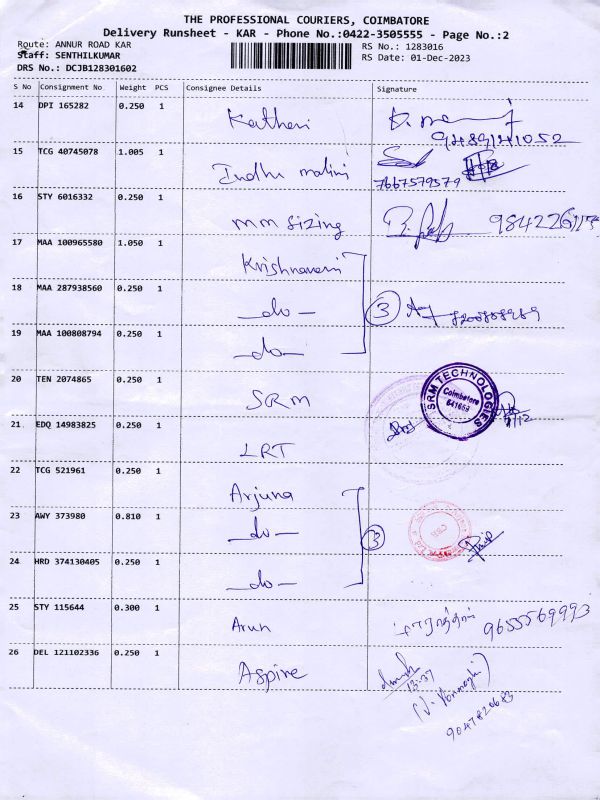 THE PROFESSIONAL COURIERS, COIMBATORE
Delivery Runsheet - KAR - Phone No.:0422-3505555 - Page No.:2
Route: ANNUR ROAD KAR
RS No.: 1283016
Staff: SENTHILKUMAR
RS Date: 01-Dec-2023
DRS No.: DCJB128301602
S No Consignment No Weight PCS Consignee Details Signature
14 DPI 165282 0.250 1 Katheri
9489141052
15 TCG 40745078 1.005 1 Indhu malini
7667579579
16 STY 6016332 0.250 1 mm sizing
17 MAA 100965580 1.050 1 Krishnaveni
18 MAA 287938560 0.250 1 —do— 3
19 MAA 100808794 0.250 1 —do—
20 TEN 2074865 0.250 1 SRM
SRM TECHNOLOGIES
Coimbatore
21 EDQ 14983825 0.250 1 LRT
22 TCG 521961 0.250 1 Arjuna
23 AWY 373980 0.810 1 —do— 3
24 HRD 374130405 0.250 1 —do—
25 STY 115644 0.300 1 Arun 9655569993
26 DEL 121102336 0.250 1 Aspire
13:37
9047820683